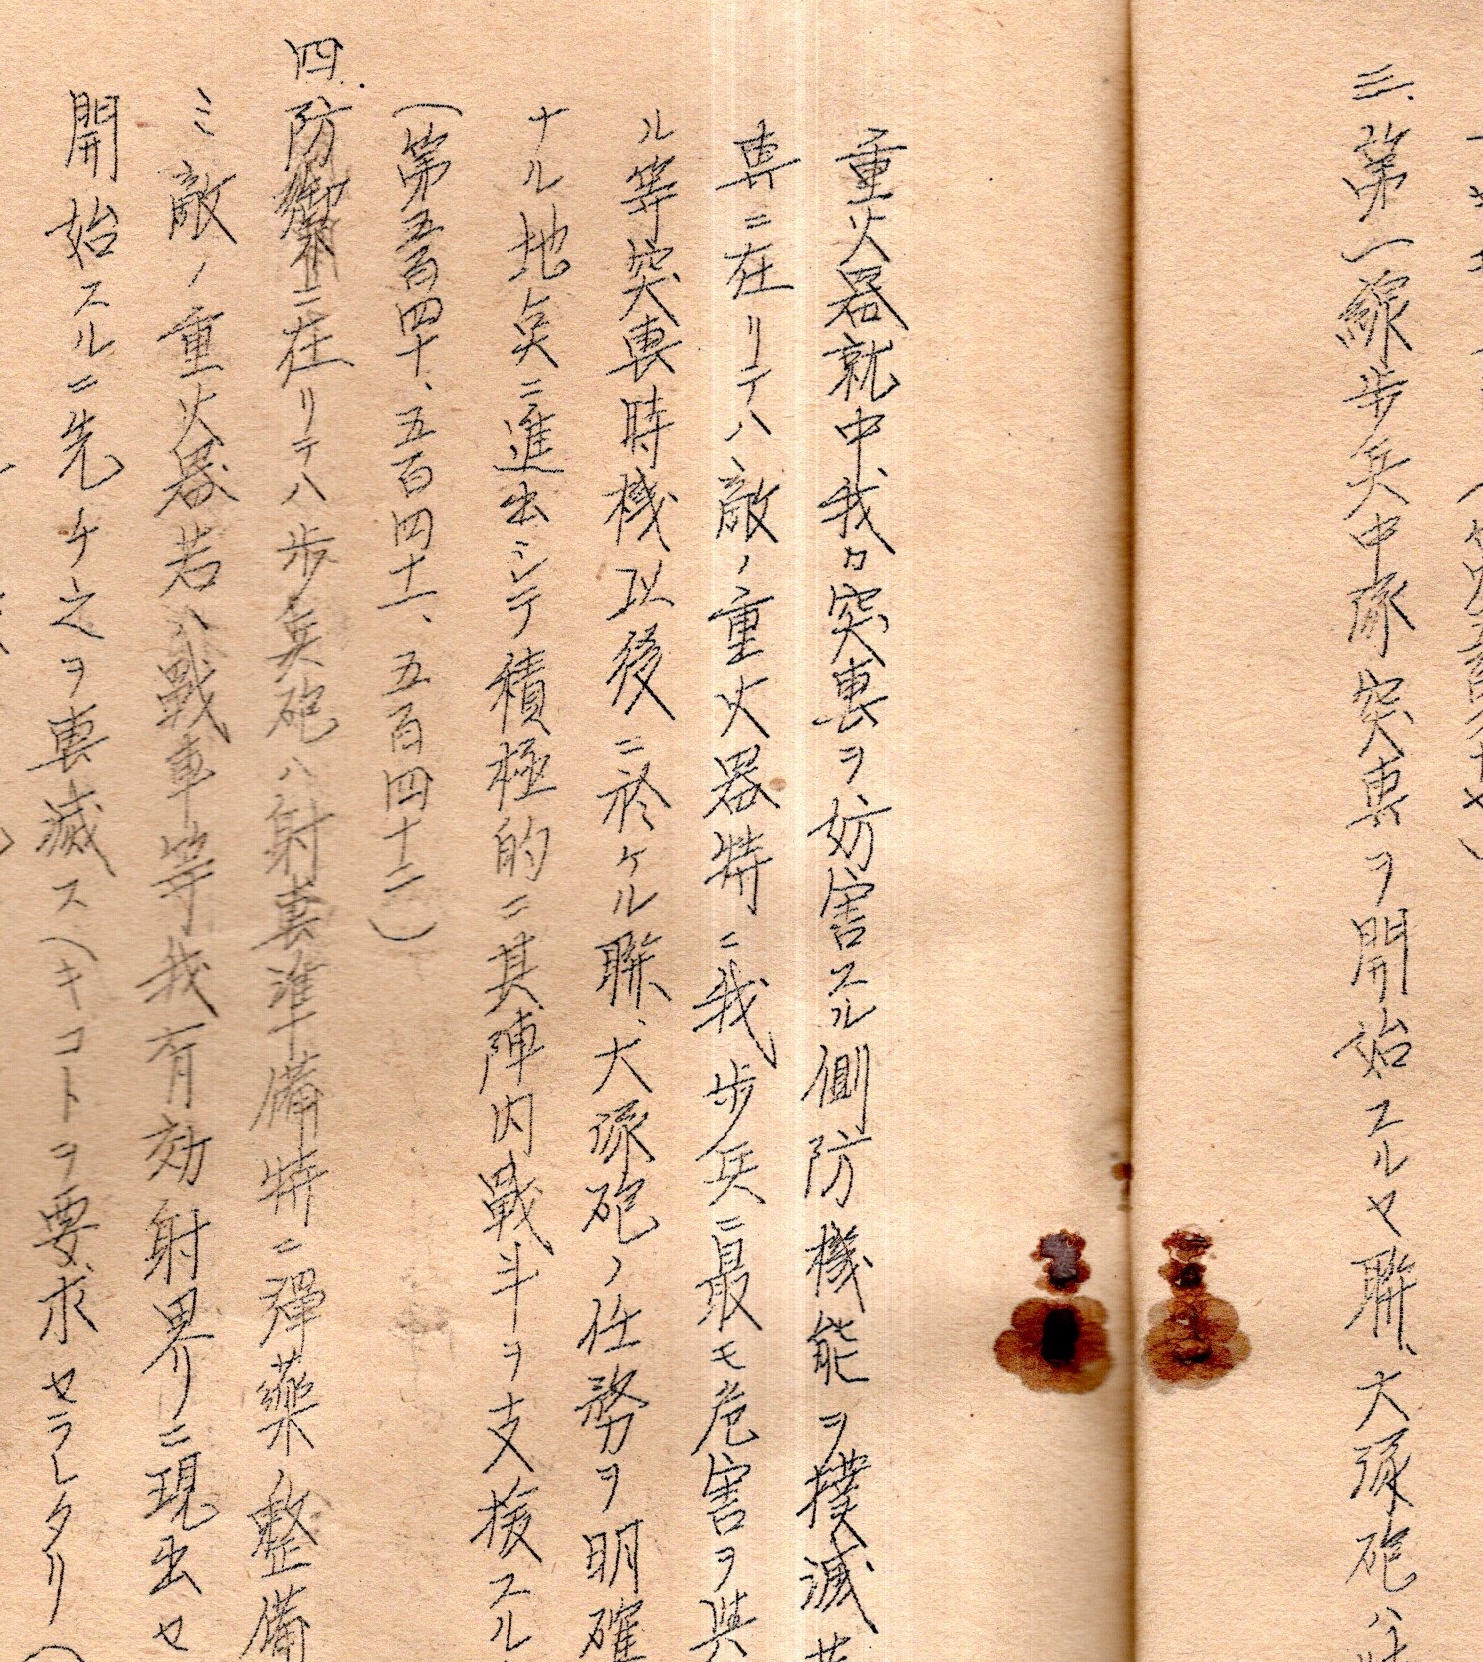 三、第一線步兵中隊突撃ヲ開始スルヤ聯、大隊砲ハ
重火器就中我カ突撃ヲ妨害スル側防機能ヲ撲滅
撃ニ在リテハ敵ノ重火器特ニ我步兵ニ最モ危害ヲ與
ル等突撃時機以後ニ於ケル聯、大隊砲ノ任務ヲ明確
ナル地点ニ進出シテ積極的ニ其陣内戰斗ヲ支援スル
(第五百四十、五百四十一、五百四十二)
四、防禦ニ在リテハ步兵砲ハ射撃準備特ニ彈藥ノ整備
ミ敵ノ重火器若ハ戰車等我有効射界リニ現出セ
開始スルニ先ケ之ヲ撃滅スヘキコトヲ要求セラレタリ